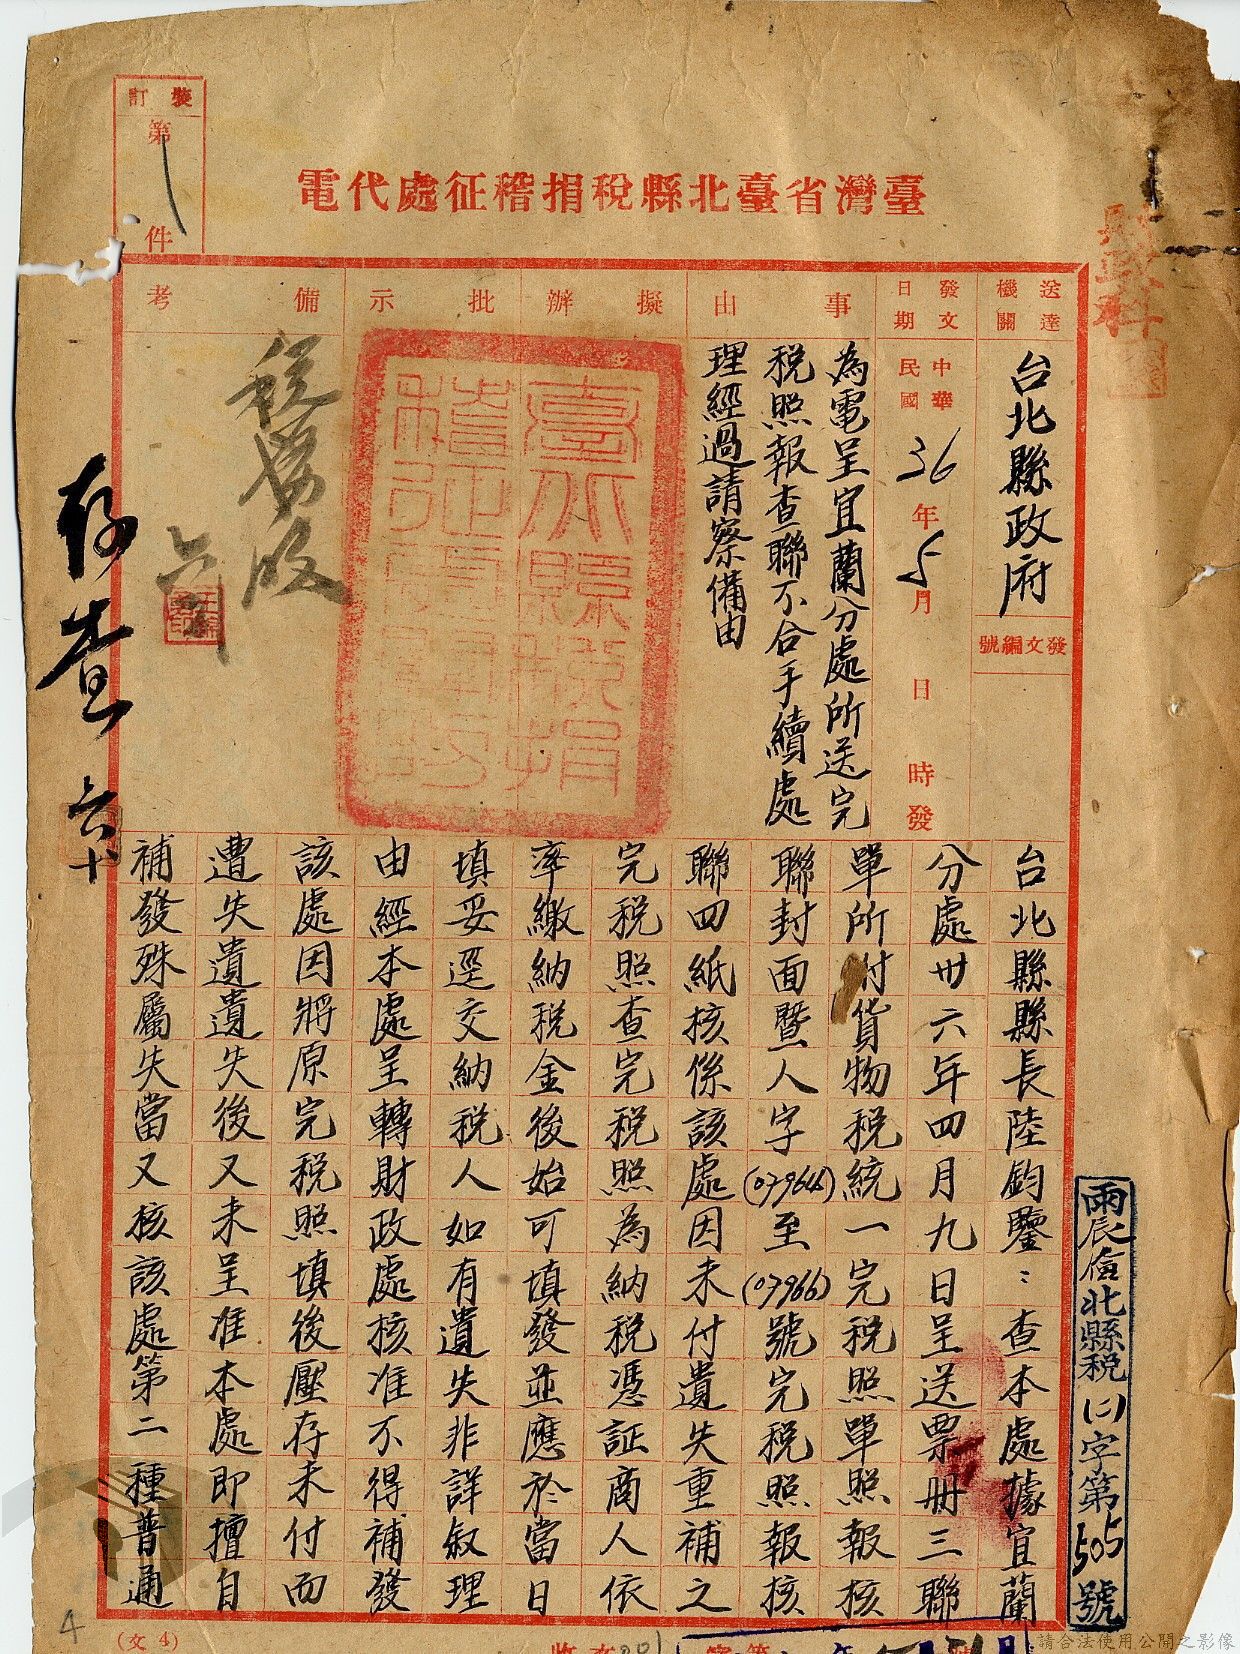 臺灣省臺北縣稅捐稽征處代電
裝訂
第
件
財政科
送達機關
台北縣政府
發文編號
發文日期
中華民國36年5月 日 時發
事由
為電呈宜蘭分處所送完
稅照報查聯不合手續處
理經過請察備由
擬辦
批示
備考
稅務股
存查
六十
臺北縣稅捐稽征處
台北縣縣長陸鈞鑒:查本處據宜蘭
分處卅六年四月九日呈送票冊三聯
單所附貨物稅統一完稅照單照報核
聯封面暨人字
至(07966)號完稅照報核
聯四紙核係該處因未付遺失重補之
完稅照查完稅照為納稅憑証商人依
率繳納稅金後始可填發並應於當日
填妥逕交納稅人如有遺失非詳敘理
由經本處呈轉財政處核准不得補發
該處因將原完稅照填後壓存未付而
遭失遺遺失後又未呈准本處即擅自
補發殊屬失當又核該處第二種普通
丙辰儉北縣稅(二)字第505號
(文4)
4
請合法使用公開之影像